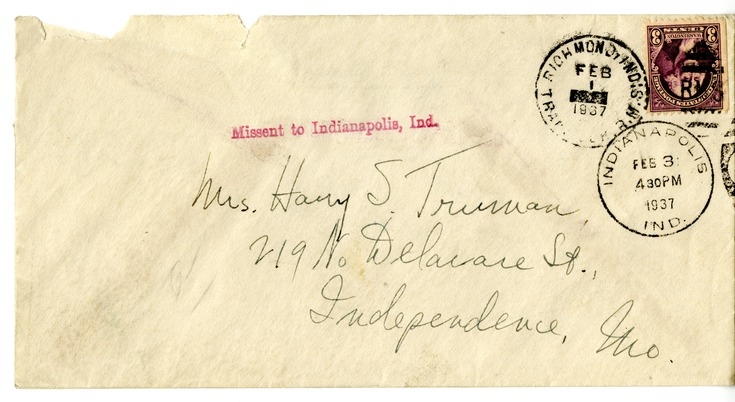 RICHMOND, IND.
FEB
1
1937
R.M.
3 3
Missent to Indianapolis, Ind.
INDIANAPOLIS
FEB 3
4 30 PM
1937
IND.
Mrs. Harry S. Truman,
219 No Delaware St.,
Independence, Mo.